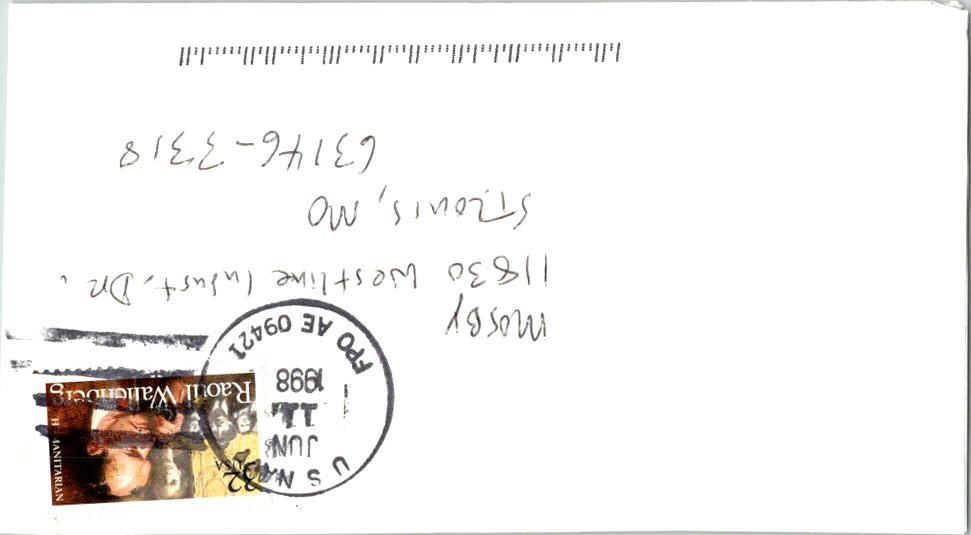 MOSBY
11830 Westline Indust. Dr.
St Louis, MO
63146-3318
U S NAVY
JUN
11
1998
FPO AE 09421
32
USA
HUMANITARIAN
Raoul Wallenberg